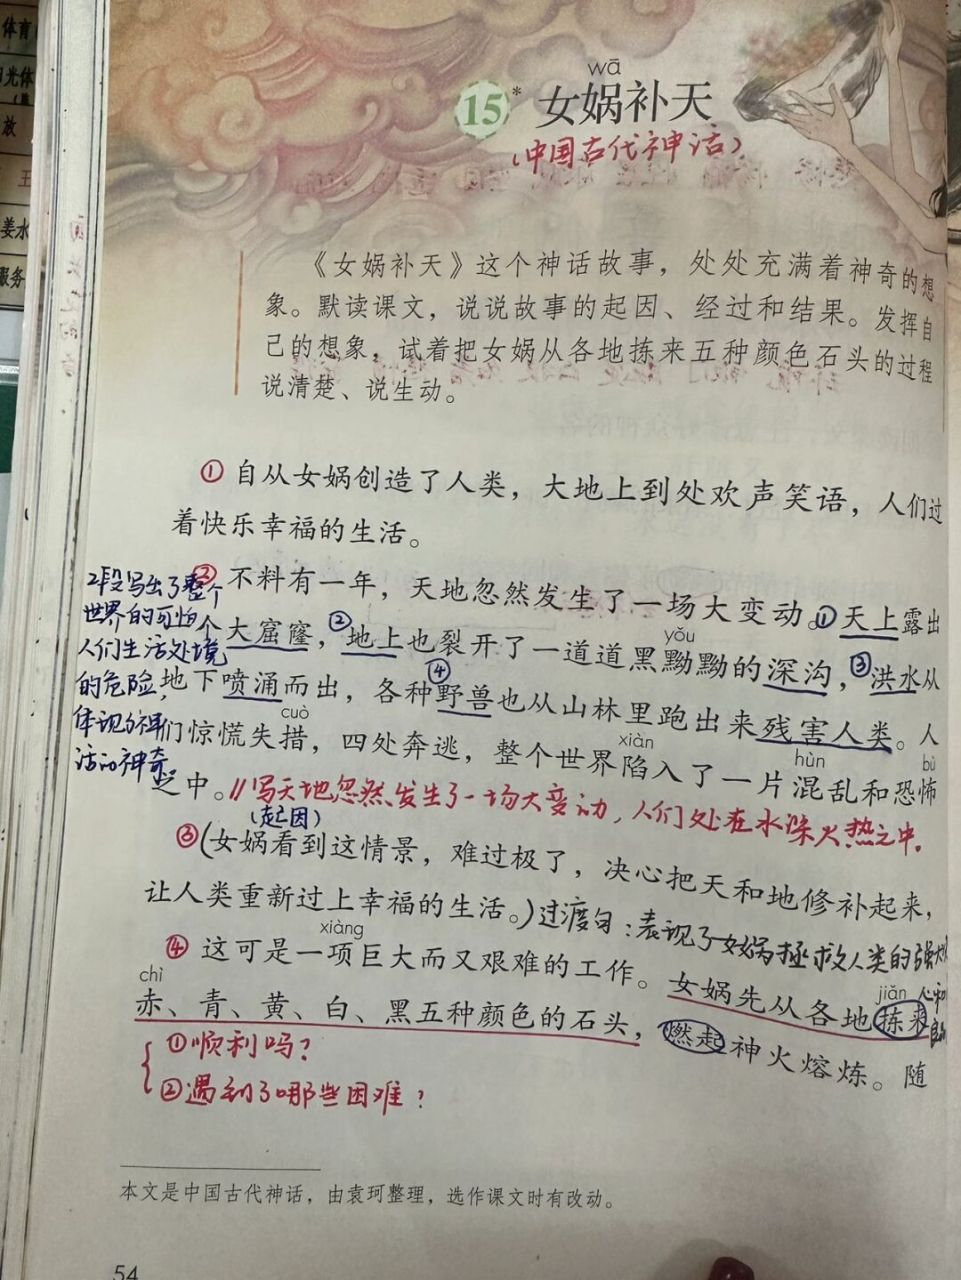 体育
阳光体
放
王
姜水
服务
wā
15* 女娲补天
(中国古代神话)
《女娲补天》这个神话故事，处处充满着神奇的想
象。默读课文，说说故事的起因、经过和结果。发挥自
己的想象，试着把女娲从各地拣来五种颜色石头的过程
说清楚、说生动。
① 自从女娲创造了人类，大地上到处欢声笑语，人们过
着快乐幸福的生活。
② 不料有一年，天地忽然发生了一场大变动。①天上露出
2段写出了整个
世界的可怕
人们生活处境
的危险，
体现了神
话的神奇
个大窟窿，②地上也裂开了一道道黑黝黝的深沟，③洪水从
yǒu
地下喷涌而出，各种④野兽也从山林里跑出来残害人类。人
cuò
们惊慌失措，四处奔逃，整个世界陷入了一片混乱和恐怖
xiàn
hùn
bù
之中。//写天地忽然发生了一场大变动，人们处在水深火热之中。
(起因)
③(女娲看到这情景，难过极了，决心把天和地修补起来，
让人类重新过上幸福的生活。)过渡句：表现了女娲拯救人类的强大决
心和
xiàng
④ 这可是一项巨大而又艰难的工作。女娲先从各地拣来
chì
jiǎn
赤、青、黄、白、黑五种颜色的石头，燃起神火熔炼。随
①顺利吗？
②遇到了哪些困难？
本文是中国古代神话，由袁珂整理，选作课文时有改动。
54